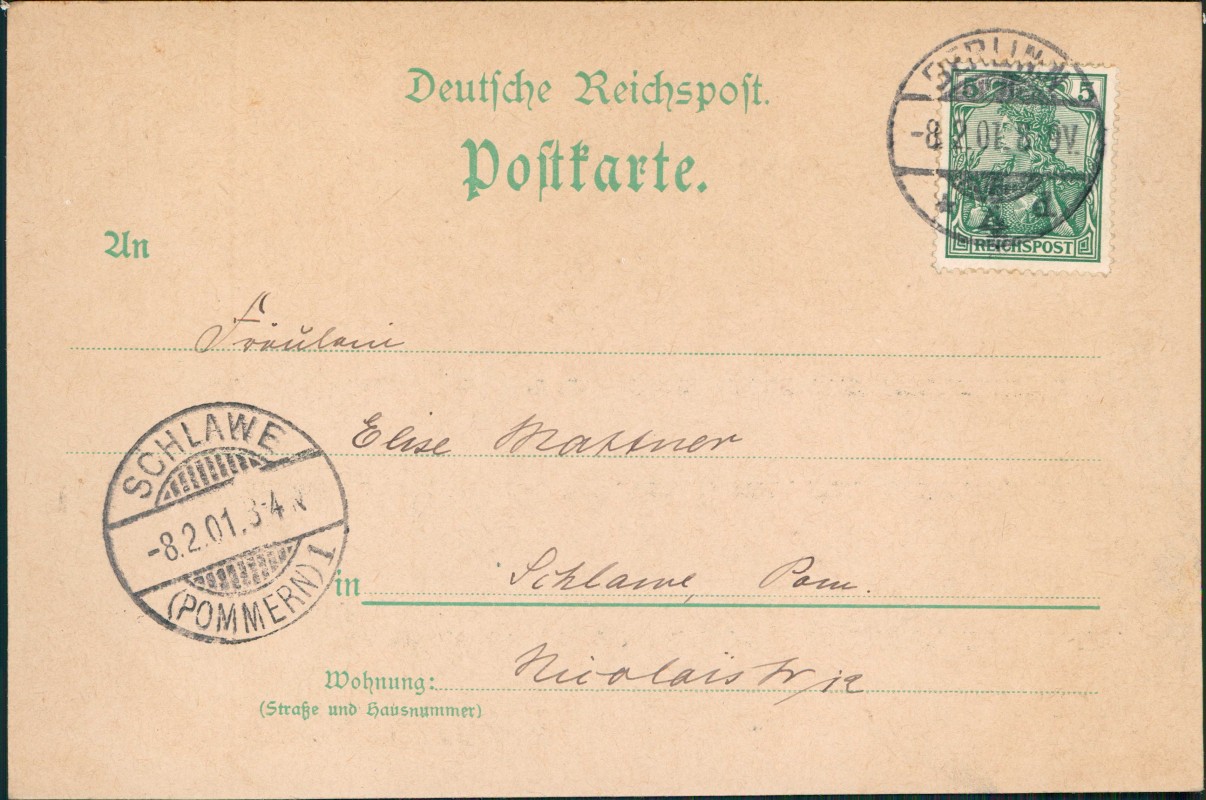 Deutsche Reichspost.
Postkarte.
BERLIN
5 5
-8.2.01. 8-9V.
* 4 d
REICHSPOST
An
Fräulein
Elise Mattner
SCHLAWE
-8.2.01. 3-4 N
(POMMERN) 1
in Schlawe, Pom.
Wohnung: Nicolaistr 12
(Straße und Hausnummer)